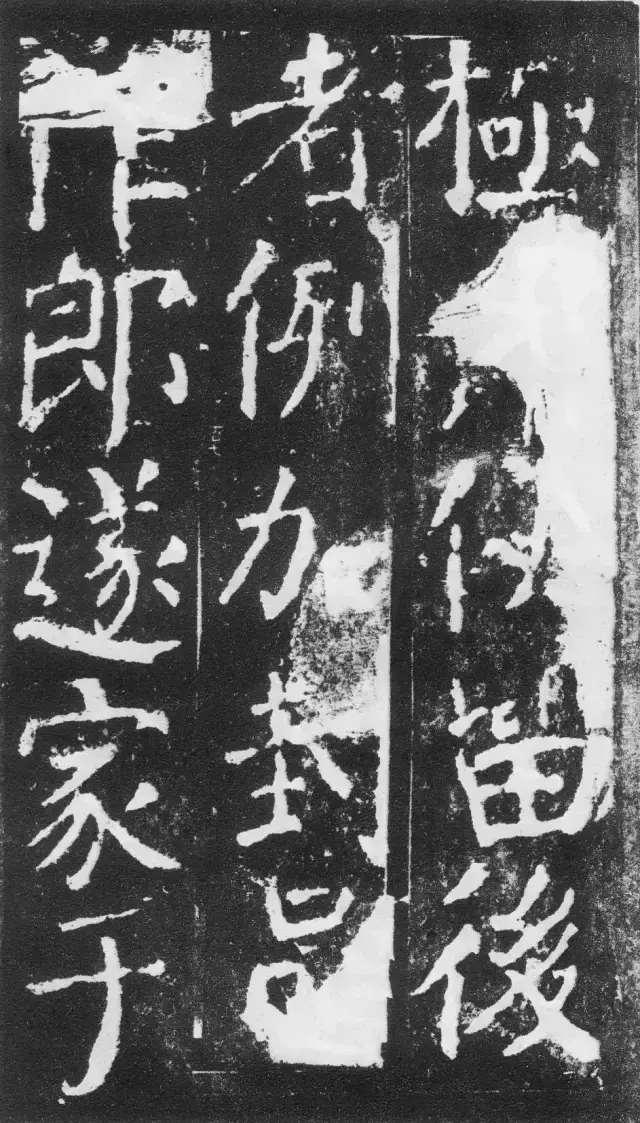 極留後
者例加封
作郎遂家于